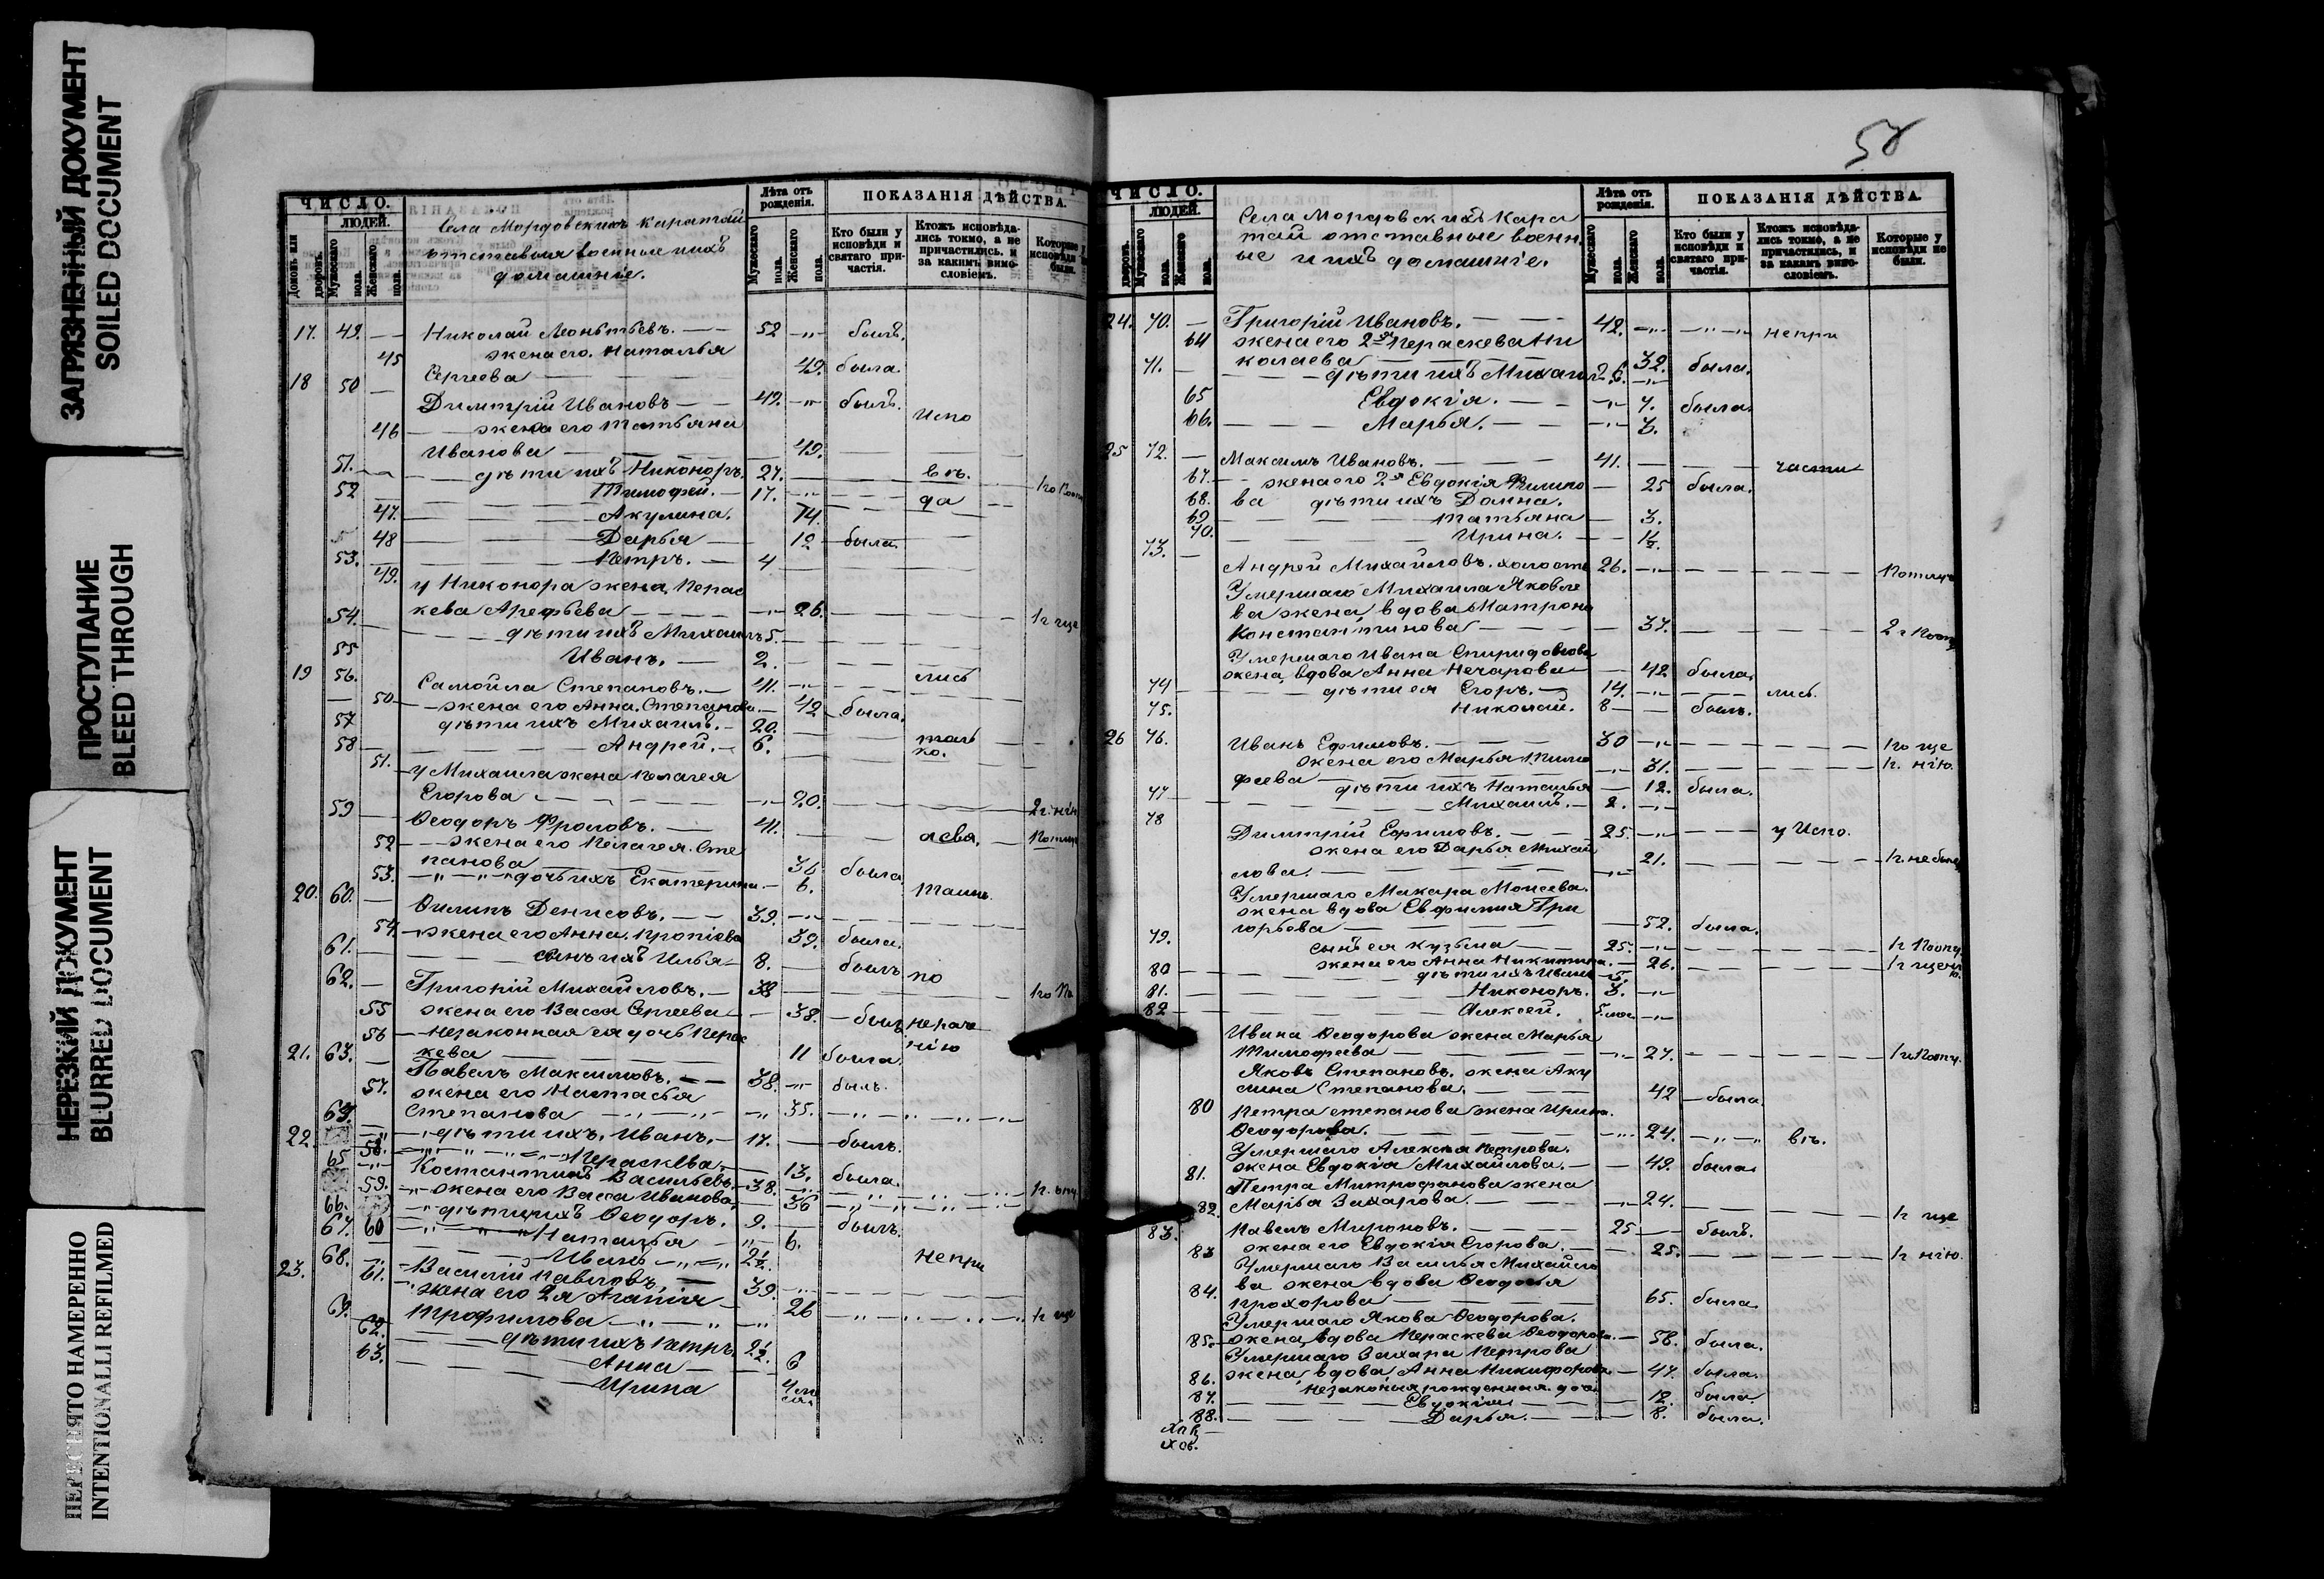 ЗАГРЯЗНЕННЫЙ ДОКУМЕНТ
SOILED DOCUMENT
ПРОСТУПАНИЕ
BLEED THROUGH
НЕРЕЗКИЙ ДОКУМЕНТ
BLURRED DOCUMENT
ПЕРЕСНЯТО НАМЕРЕННО
INTENTIONALLI REFILMED
ЧИСЛО.
ЛЮДЕЙ.
домовъ или дворовъ.
Мужескаго пола.
Женскаго пола.
Села Мордовскихъ Каратай
отставныя военные ихъ
домашніе.
Лѣта отъ рожденія.
Мужескаго пола.
Женскаго пола.
ПОКАЗАНІЯ ДѢЙСТВА.
Кто были у исповѣди и святаго причастія.
Ктожъ исповѣдались токмо, а не причастились, и за какимъ винословіемъ.
Которые у исповѣди не были.
17. 49. — Николай Леонтьевъ. — 52 былъ.
45 жена его. Наталья
Сергеева — 49. была.
18 50 — Димитрій Ивановъ — 49. былъ. Испо
46 жена его Татьяна
Иванова — 49.
51. дѣти ихъ Никоноръ. 27. вѣ.
52 Тимофей. — 17. да
47. Акулина. 14.
48 Дарья — 12 была.
53. Петръ. — 4
49. у Никонора жена, Перас
кева Арефьева — 26.
54. дѣти ихъ Михаилъ 5.
55 Иванъ. — 2.
19 56. Самойла Степановъ. — 41. лись
50 жена его Анна. Степанова. — 42 была.
57 дѣти ихъ Михаилъ. — 20.
58 Андрей. — 6. толь
ко.
51. у Михаила жена Пелагея
Егорова — 20.
59 — Ѳеодоръ Фроловъ. — 41.
52 жена его Пелагея. Сте
панова — 36 была
53. дочь ихъ Екатерина — 6.
20. 60. — Филипъ Денисовъ. — 39.
54. жена его Анна. 39. была.
61. сынъ ихъ Илья — 8. былъ по
62. — Григорій Михайловъ. — 38
55 жена его Васса Сергеева — 38.
56 незаконная ея дочь Перас
кева — 11 была.
21. 63. — Павелъ Максимовъ. — 38. былъ.
57. жена его Настасья
Степанова — 35.
22. дѣти ихъ. Иванъ. — 17. былъ.
58. Пераскева. — 13. была.
65 Костантинъ Васильевъ. — 38.
59. жена его Васса Иванова. — 36
66. дѣти ихъ Ѳеодоръ. 9. былъ.
67. 60 Наталья — 6.
68. Иванъ
23. 61. Василій Павловъ, — 39. непри
жена его 2я Агапія
Трофимова — 26
69. 62. дѣти ихъ Петръ.
63. Анна — 6
Ирина
58
ЧИСЛО.
ЛЮДЕЙ.
дворовъ.
Мужескаго пола.
Женскаго пола.
Села Мордовскихъ Кара
тай отставные военн.
ые и ихъ домашніе.
Лѣта отъ рожденія.
Мужескаго пола.
Женскаго пола.
ПОКАЗАНІЯ ДѢЙСТВА.
Кто были у исповѣди и святаго причастія.
Ктожъ исповѣдались токмо, а не причастились, и за какимъ винословіемъ.
Которые у исповѣди не были.
24. 70. — Григорій Ивановъ. — 42. непри
64 жена его 2я Пераскева Ни
колаева — 32. была.
71. дѣти ихъ Михаилъ
65 Евдокія. — 7. была
66. Марья. — 3.
25 72. — Максимъ Ивановъ. — 41. части
67. жена его 2я Евдокія Филипо — 25 была.
68. ва дѣти ихъ Домна.
69 Татьяна — 3.
70. Ирина.
73. — Андрей Михайловъ. холостъ 26.
Умершаго Михаила Яковле
ва жена вдова Матрона
Константинова — 37.
Умершаго Ивана Спиридонова
жена, вдова Анна Нечарова — 42 была.
74 дѣти ея Егоръ. — 14. лись.
75. Николай. 8 — былъ.
26 76. Иванъ Ефимовъ. — 30
жена его Марья Тимо
феева — 31.
дѣти ихъ Наталья — 12. была.
77 Михаилъ. — 2.
78 Димитрій Ефимовъ. — 25. у Испо.
жена его Дарья Михай
лова. — 21.
Умершаго Макара Моисеева.
жена вдова Евфимия Гри
горьева — 52. была.
79. сынъ ея Кузьма — 25.
жена его Анна Никитина. — 26.
80 дѣти ихъ Иванъ
81. Никоноръ. 3.
82 Алексей.
Ивана Ѳеодорова жена Марья
Тимофеева — 27.
Яковъ Степановъ. жена Аку
лина Степанова. — 42 была.
80 Петра степанова жена Ирина.
Ѳеодорова. — 24. вѣ.
Умершаго Алексея Петрова.
жена Евдокія Михайлова. — 49. была.
81. Петра Митрофанова жена
Марья Захарова. — 24.
82. 83. Павелъ Мироновъ. — 25 — былъ.
83 жена его Евдокія Егорова. — 25.
Умершаго Василья Михайло
ва жена вдова Ѳеодосья
84. Прохорова — 65. была.
Умершаго Якова Ѳеодорова.
85. жена, вдова Пераскева Ѳеодорова. — 58. была.
Умершаго Захара Петрова
86. жена, вдова Анна Никифорова. — 47. была.
87. незаконнорожденная. доч.
Евдокія — 12. была.
88. Дарья. — 8. была.